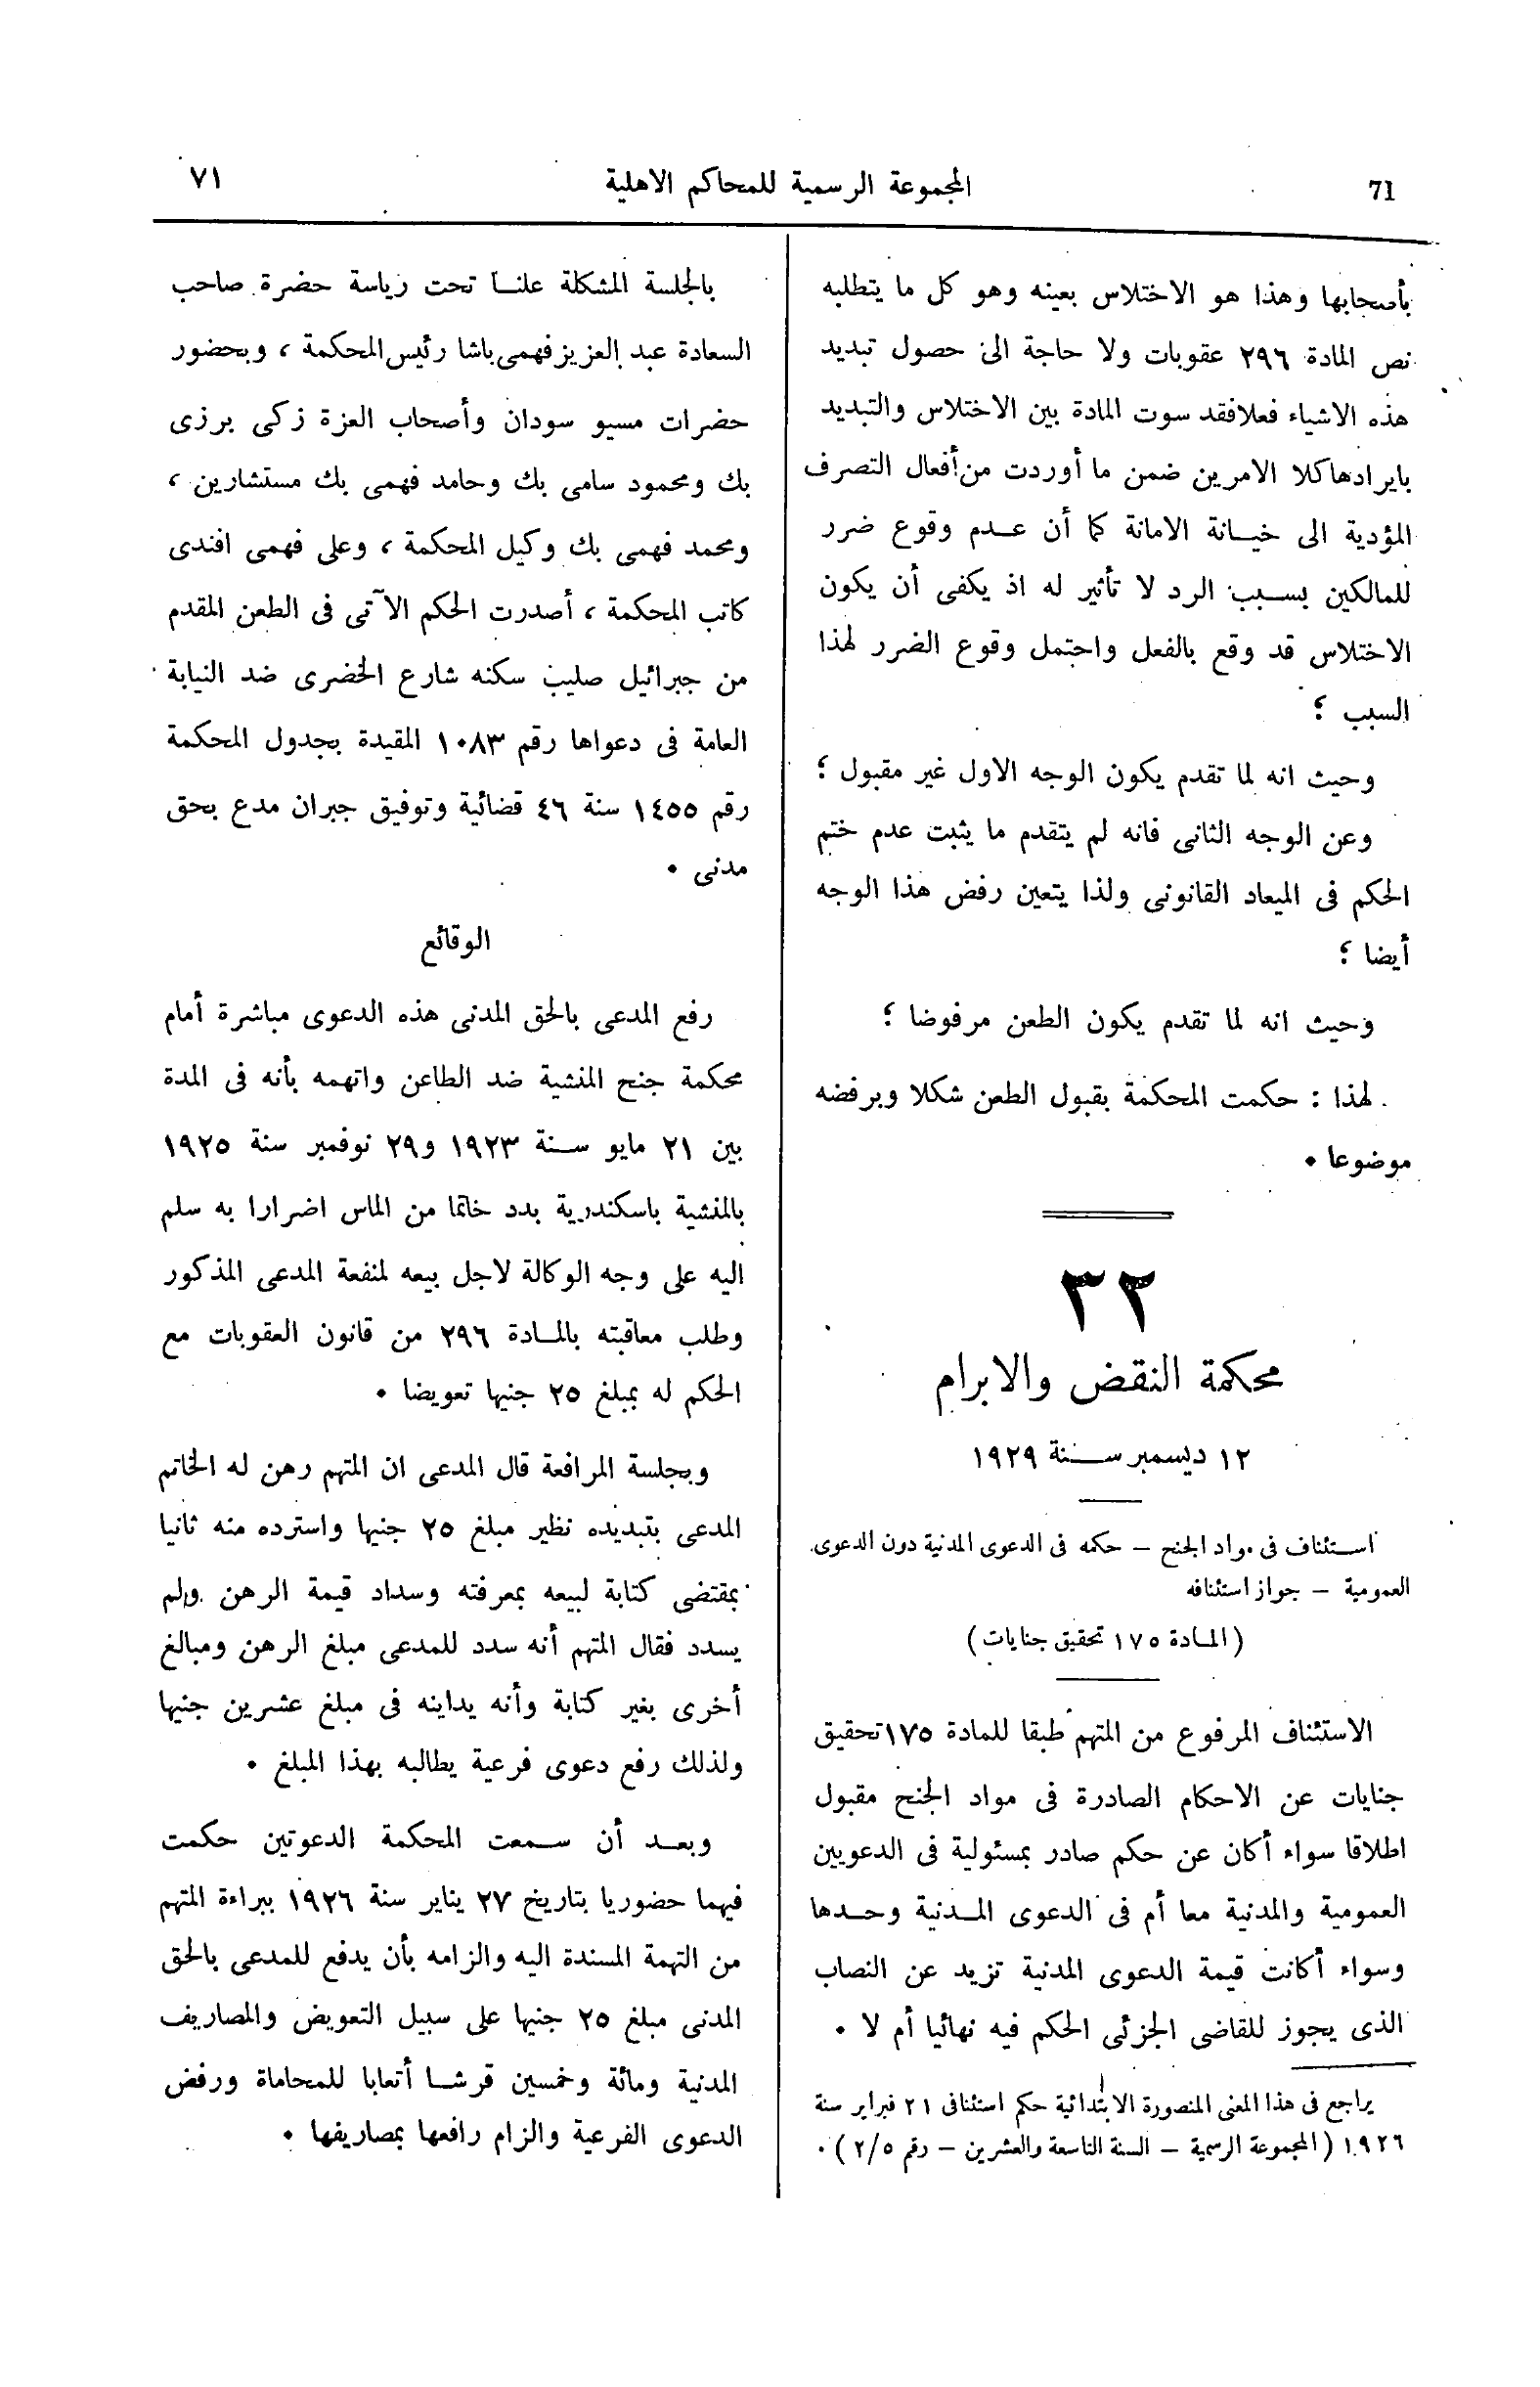 71
المجموعة الرسمية للمحاكم الاهلية
٧١
بأصحابها وهذا هو الاختلاس بعينه وهو كل ما يتطلبه
نص المادة ٢٩٦ عقوبات ولا حاجة الى حصول تبديد
هذه الاشياء فعلا فقد سوت المادة بين الاختلاس والتبديد
بايرادها كلا الامرين ضمن ما أوردت من أفعال التصرف
المؤدية الى خيانة الامانة كما أن عدم وقوع ضرر
للمالكين بسبب الرد لا تأثير له اذ يكفى أن يكون
الاختلاس قد وقع بالفعل واحتمل وقوع الضرر لهذا
السبب ؛
وحيث انه لما تقدم يكون الوجه الاول غير مقبول ؛
وعن الوجه الثانى فانه لم يتقدم ما يثبت عدم ختم
الحكم فى الميعاد القانونى ولذا يتعين رفض هذا الوجه
أيضا ؛
وحيث انه لما تقدم يكون الطعن مرفوضا ؛
لهذا : حكمت المحكمة بقبول الطعن شكلا وبرفضه
موضوعا ٠
٣٢
محكمة النقض والابرام
١٢ ديسمبر سنة ١٩٢٩
استئناف فى مواد الجنح – حكمه فى الدعوى المدنية دون الدعوى
العمومية – جواز استئنافه
(المادة ١٧٥ تحقيق جنايات)
الاستئناف المرفوع من المتهم طبقا للمادة ١٧٥ تحقيق
جنايات عن الاحكام الصادرة فى مواد الجنح مقبول
اطلاقا سواء أكان عن حكم صادر بمسئولية فى الدعويين
العمومية والمدنية معا أم فى الدعوى المدنية وحدها
وسواء أكانت قيمة الدعوى المدنية تزيد عن النصاب
الذى يجوز للقاضى الجزئى الحكم فيه نهائيا أم لا ٠
يراجع فى هذا المعنى المنصورة الابتدائية حكم استئنافى ٢١ فبراير سنة
١٩٢٦ (المجموعة الرسمية – السنة التاسعة والعشرين – رقم ٢/٥) ٠
بالجلسة المشكلة علنا تحت رياسة حضرة صاحب
السعادة عبد العزيز فهمى باشا رئيس المحكمة ، وبحضور
حضرات مسيو سودان وأصحاب العزة زكى برزى
بك ومحمود سامى بك وحامد فهمى بك مستشارين ،
ومحمد فهمى بك وكيل المحكمة ، وعلى فهمى افندى
كاتب المحكمة ، أصدرت الحكم الآتى فى الطعن المقدم
من جبرائيل صليب سكنه شارع الخضرى ضد النيابة
العامة فى دعواها رقم ١٠٨٣ المقيدة بجدول المحكمة
رقم ١٤٥٥ سنة ٤٦ قضائية وتوفيق جبران مدع بحق
مدنى ٠
الوقائع
رفع المدعى بالحق المدنى هذه الدعوى مباشرة أمام
محكمة جنح المنشية ضد الطاعن واتهمه بأنه فى المدة
بين ٢١ مايو سنة ١٩٢٣ و٢٩ نوفمبر سنة ١٩٢٥
بالمنشية باسكندرية بدد خاتما من الماس اضرارا به سلم
اليه على وجه الوكالة لاجل بيعه لمنفعة المدعى المذكور
وطلب معاقبته بالمادة ٢٩٦ من قانون العقوبات مع
الحكم له بمبلغ ٢٥ جنيها تعويضا ٠
وبجلسة المرافعة قال المدعى ان المتهم رهن له الخاتم
المدعى بتبديده نظير مبلغ ٢٥ جنيها واسترده منه ثانيا
بمقتضى كتابة لبيعه بمعرفته وسداد قيمة الرهن ولم
يسدد فقال المتهم أنه سدد للمدعى مبلغ الرهن ومبالغ
أخرى بغير كتابة وأنه يداينه فى مبلغ عشرين جنيها
ولذلك رفع دعوى فرعية يطالبه بهذا المبلغ ٠
وبعد أن سمعت المحكمة الدعوتين حكمت
فيهما حضوريا بتاريخ ٢٧ يناير سنة ١٩٢٦ ببراءة المتهم
من التهمة المسندة اليه والزامه بأن يدفع للمدعى بالحق
المدنى مبلغ ٢٥ جنيها على سبيل التعويض والمصاريف
المدنية ومائة وخمسين قرشا أتعابا للمحاماة ورفض
الدعوى الفرعية والزام رافعها بمصاريفها ٠